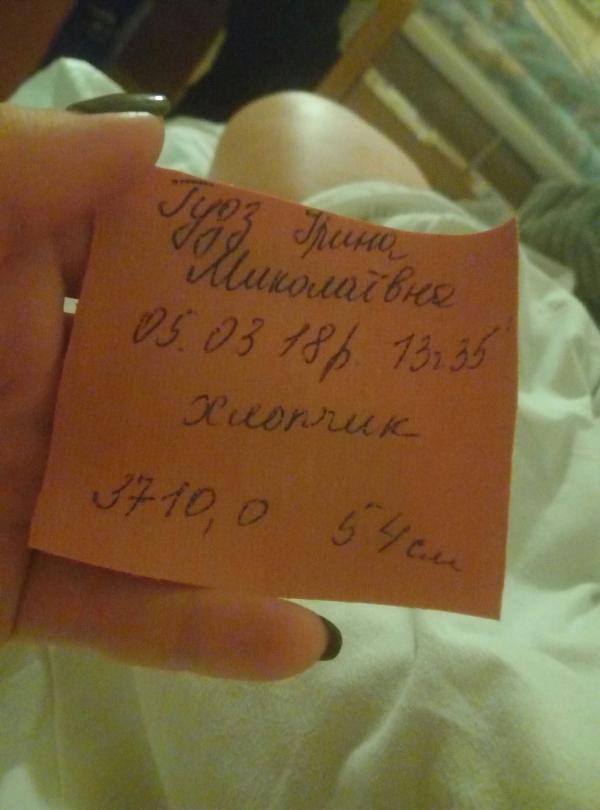 Гудз Ірина
Миколаївна
05.03 18р. 13г35
Хлопчик
3710,0 54см